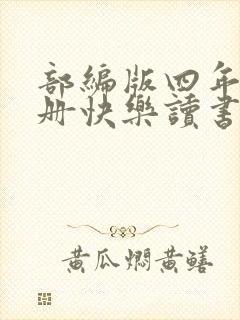 部編版四年
冊快樂讀書
黃瓜燜黃鱔